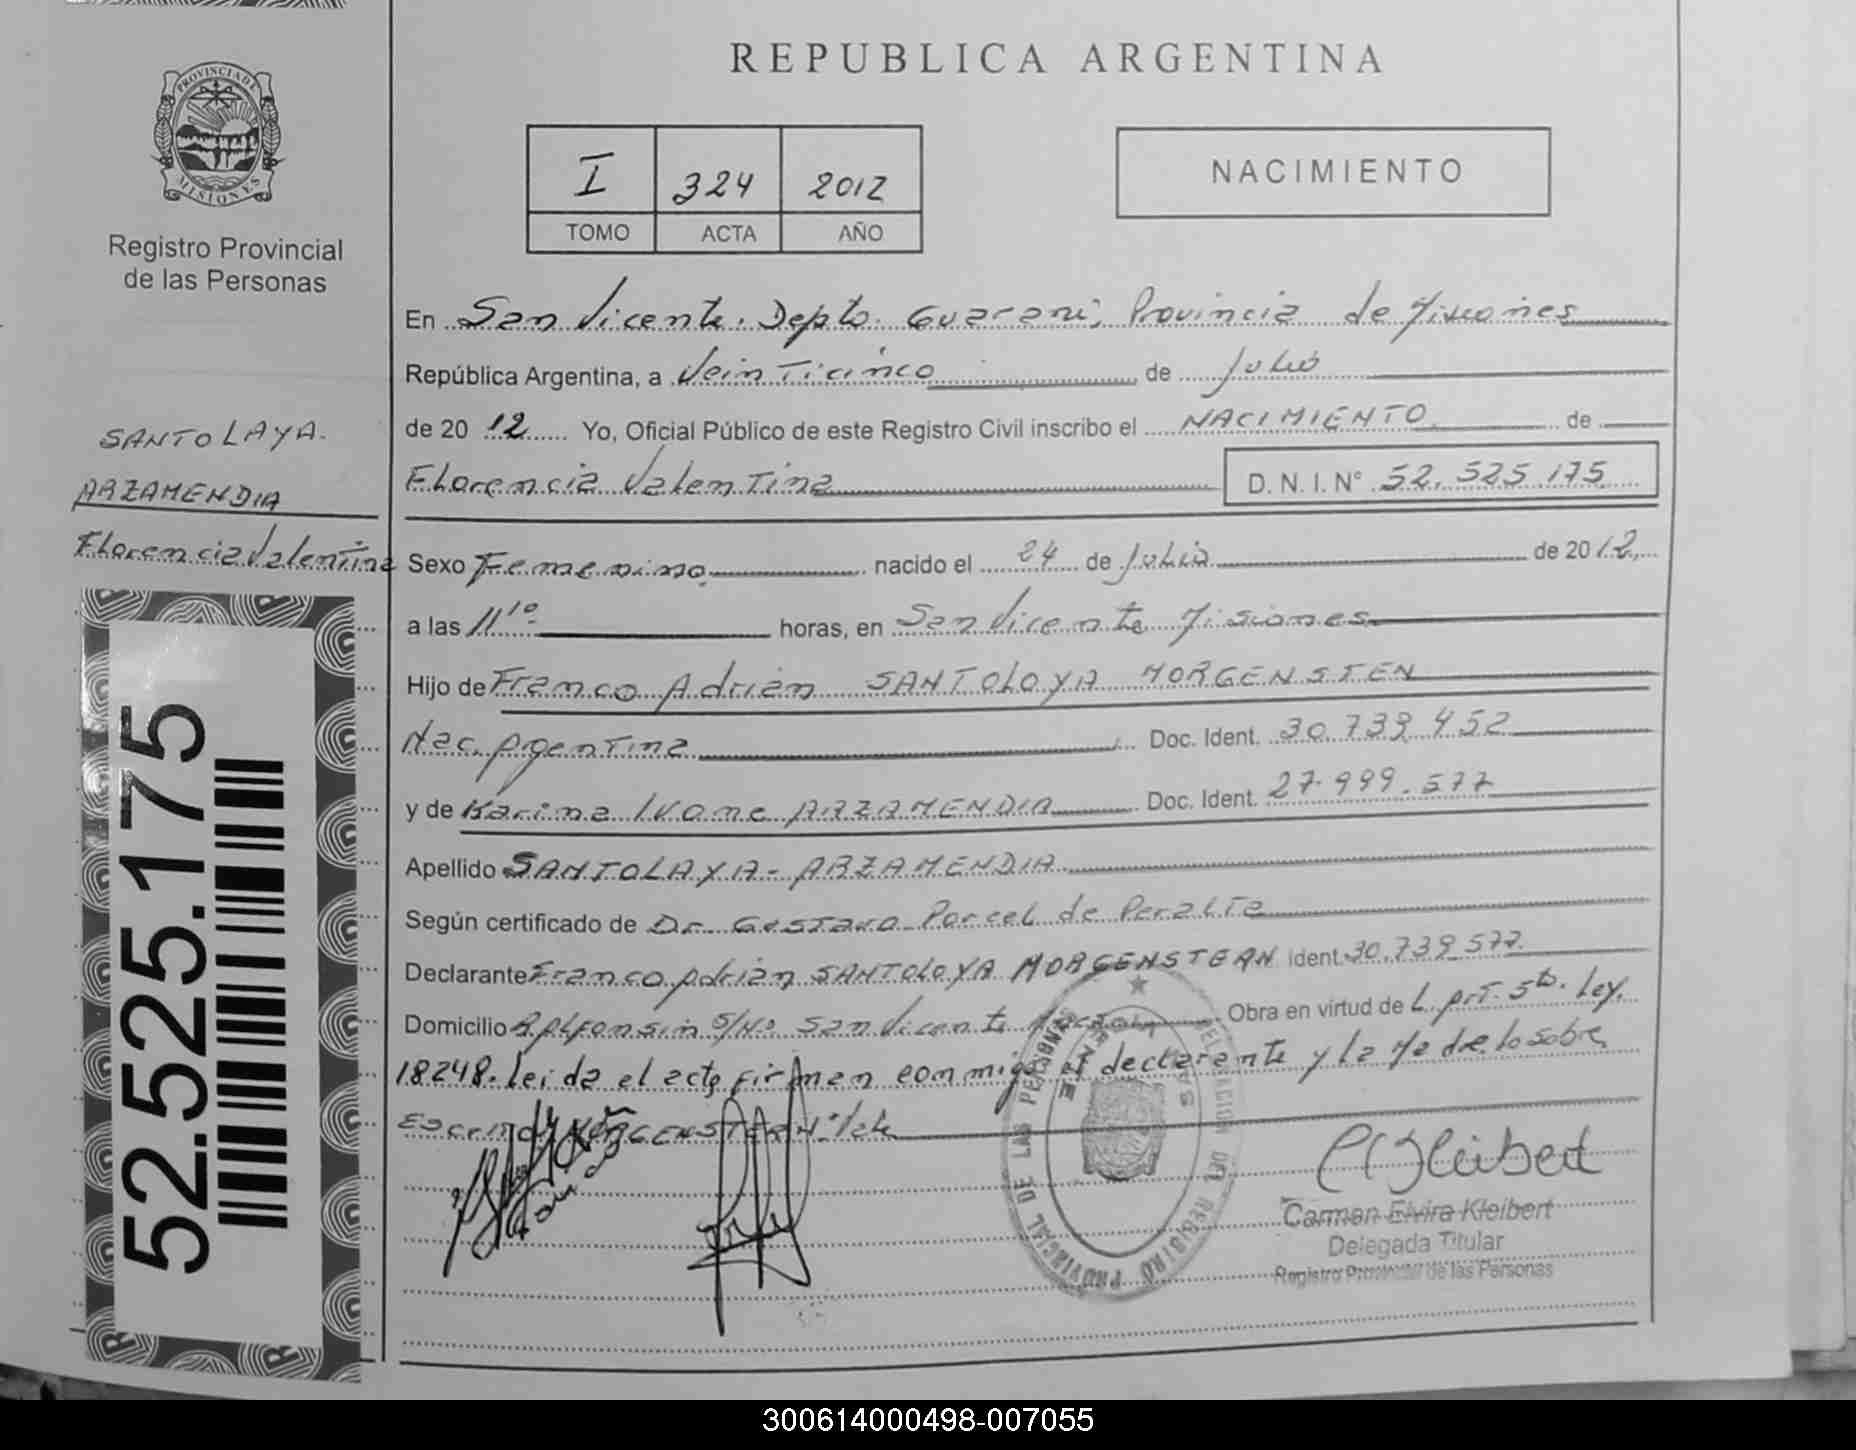 REPUBLICA ARGENTINA
PROVINCIA DE
MISIONES
Registro Provincial
de las Personas
I 324 2012
TOMO ACTA AÑO
NACIMIENTO
SANTOLAYA.
ARZAMENDIA
Florencia Valentina
52.525.175
En San Vicente. Depto. Guarani, Provincia de Misiones
República Argentina, a Veinticinco de Julio
de 2012 Yo, Oficial Público de este Registro Civil inscribo el NACIMIENTO de
Florencia Valentina D. N. I. N° 52.525.175
Sexo Femenino nacido el 24 de Julio de 2012
a las 11'° horas, en San Vicente Misiones
Hijo de Franco Adrian SANTOLOYA MORGENSTEN
Nac. Argentina Doc. Ident. 30.739.452
y de Karina Ivone ARZAMENDIA Doc. Ident. 27.999.577
Apellido SANTOLAYA - ARZAMENDIA
Según certificado de Dr. Gustavo Porcel de Peralta
Declarante Franco Adrian SANTOLOYA MORGENSTEAN Ident. 30.739.577
Domicilio R. Alfonsin S/N° San Vicente Obra en virtud de L. prt. 5to. Ley.
18248. Leida el acta firman conmigo el declarante y la Madre. lo sobre
Escrito MORGENSTERN
REGISTRO PROVINCIAL DE LAS PERSONAS
Carmen Elvira Kleibert
Delegada Titular
Registro Provincial de las Personas
300614000498-007055